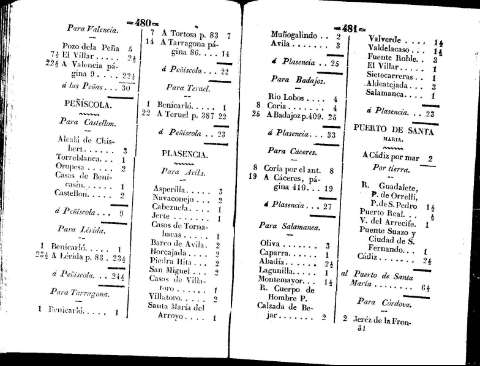 =480=
Para Valencia.
Pozo dela Peña 5
7½ El Villar . . 2½
22½ A Valencia pá-
gina 9 . . . . 22½
á las Peñas . . 30
PEÑÍSCOLA.
Para Castellon.
Alcalá de Chis-
bert. . . . . . 3
Torreblanca. . . 1
Oropesa . . . . 2
Casas de Beni-
casin. . . . . . 1
Castellon. . . . 2
á Peñíscola . . 9
Para Lérida.
1 Benicarló. . . . 1
23½ A Lérida p. 83 . 23½
á Peñíscola. . . 24½
Para Tarragona.
1 Benicarló. . . . . 1
7 A Tortosa p. 83 7
14 A Tarragona pá-
gina 86. . . . 14
á Peñíscola . . 22
Para Teruel.
1 Benicarló. . . . 1
22 A Teruel p. 387 22
á Peñíscola . . 23
PLASENCIA.
Para Avila.
Asperilla. . . . . 3
Navaconejo . . 2
Cabezuela. . . . 1
Jerte . . . . . . 1
Casas de Torna-
bacas . . . . . 1
Barco de Avila. 2
Horcajada . . . 2
Piedra Hita . . 2
San Miguel . . 2
Casas de Villa-
toro . . . . . . 1
Villatoro. . . . . 2
Santa María del
Arroyo. . . . . 1
=481=
Muñogalindo . . 2
Avila . . . . . . 3
á Plasencia . . 25
Para Badajoz.
Rio Lobos . . . . 4
8 Coria . . . . . . 4
25 A Badajoz p. 409. 25
á Plasencia. . . 33
Para Caceres.
8 Coria por el ant. 8
19 A Cáceres, pá-
gina 410. . . 19
á Plasencia. . . 27
Para Salamanca.
Oliva . . . . . . 3
Caparra. . . . . 1
Abadía . . . . . 2½
Lagunilla. . . . . 1
Montemayor. . . 1½
R. Cuerpo de
Hombre P.
Calzada de Be-
jar . . . . . . . 2
Valverde . . . 1½
Valdelacaso. . . 1½
Fuente Roble. . 3
El Villar . . . . 1
Sietecarreras. . .
Aldeatejada. . . 3
Salamanca. . . . 1
á Plasencia. . . 23
PUERTO DE SANTA
MARIA.
A Cádiz por mar 2
Por tierra.
R. Guadalete,
P. de Orrelli,
P. de S. Pedro 1½
Puerto Real. . . ½
V. del Arrecife. 1
Puente Suazo y
Ciudad de S.
Fernando. . . 1
Cádiz . . . . . . 2½
al Puerto de Santa
María . . . . . 6½
Para Córdova.
2 Jeréz de la Fron-